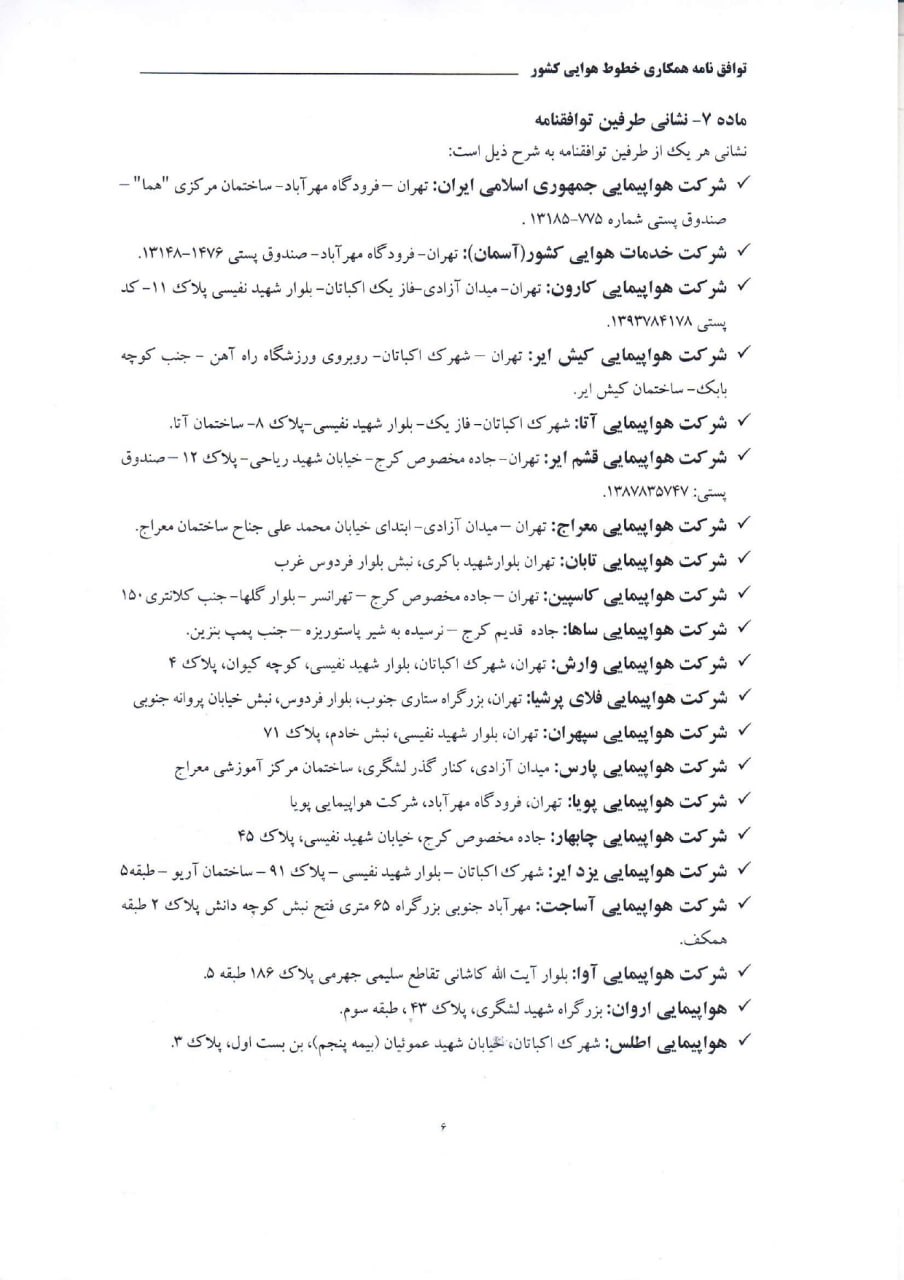 توافق نامه همکاری خطوط هوایی کشور
ماده ۷- نشانی طرفین توافقنامه
نشانی هر یک از طرفین توافقنامه به شرح ذیل است:
✓ شرکت هواپیمایی جمهوری اسلامی ایران: تهران – فرودگاه مهرآباد- ساختمان مرکزی "هما" –
صندوق پستی شماره ۷۷۵-۱۳۱۸۵ .
✓ شرکت خدمات هوایی کشور(آسمان): تهران- فرودگاه مهرآباد- صندوق پستی ۱۴۷۶-۱۳۱۴۸.
✓ شرکت هواپیمایی کارون: تهران- میدان آزادی-فاز یک اکباتان- بلوار شهید نفیسی پلاک ۱۱- کد
پستی ۱۳۹۳۷۸۴۱۷۸.
✓ شرکت هواپیمایی کیش ایر: تهران – شهرک اکباتان- روبروی ورزشگاه راه آهن - جنب کوچه
بابک- ساختمان کیش ایر.
✓ شرکت هواپیمایی آتا: شهرک اکباتان- فاز یک- بلوار شهید نفیسی-پلاک ۸- ساختمان آتا.
✓ شرکت هواپیمایی قشم ایر: تهران- جاده مخصوص کرج- خیابان شهید ریاحی- پلاک ۱۲ – صندوق
پستی: ۱۳۸۷۸۳۵۷۴۷.
✓ شرکت هواپیمایی معراج: تهران – میدان آزادی- ابتدای خیابان محمد علی جناح ساختمان معراج.
✓ شرکت هواپیمایی تابان: تهران بلوارشهید باکری، نبش بلوار فردوس غرب
✓ شرکت هواپیمایی کاسپین: تهران – جاده مخصوص کرج – تهرانسر - بلوار گلها- جنب کلانتری ۱۵۰
✓ شرکت هواپیمایی ساها: جاده قدیم کرج – نرسیده به شیر پاستوریزه – جنب پمپ بنزین.
✓ شرکت هواپیمایی وارش: تهران، شهرک اکباتان، بلوار شهید نفیسی، کوچه کیوان، پلاک ۴
✓ شرکت هواپیمایی فلای پرشیا: تهران، بزرگراه ستاری جنوب، بلوار فردوس، نبش خیابان پروانه جنوبی
✓ شرکت هواپیمایی سپهران: تهران، بلوار شهید نفیسی، نبش خادم، پلاک ۷۱
✓ شرکت هواپیمایی پارس: میدان آزادی، کنار گذر لشگری، ساختمان مرکز آموزشی معراج
✓ شرکت هواپیمایی پویا: تهران، فرودگاه مهرآباد، شرکت هواپیمایی پویا
✓ شرکت هواپیمایی چابهار: جاده مخصوص کرج، خیابان شهید نفیسی، پلاک ۴۵
✓ شرکت هواپیمایی یزد ایر: شهرک اکباتان – بلوار شهید نفیسی – پلاک ۹۱ – ساختمان آریو – طبقه۵
✓ شرکت هواپیمایی آساجت: مهرآباد جنوبی بزرگراه ۶۵ متری فتح نبش کوچه دانش پلاک ۲ طبقه
همکف.
✓ شرکت هواپیمایی آوا: بلوار آیت الله کاشانی تقاطع سلیمی جهرمی پلاک ۱۸۶ طبقه ۵.
✓ هواپیمایی اروان: بزرگراه شهید لشگری، پلاک ۴۳، طبقه سوم.
✓ هواپیمایی اطلس: شهرک اکباتان، خیابان شهید عموئیان (بیمه پنجم)، بن بست اول، پلاک ۳.
۶